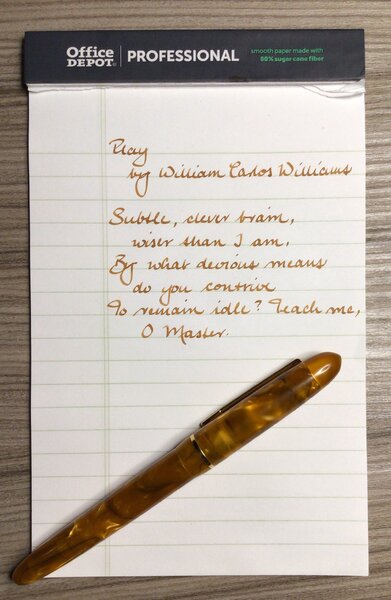 Office DEPOT® | PROFESSIONAL
smooth paper made with
80% sugar cane fiber
Play
by William Carlos Williams
Subtle, clever brain,
wiser than I am,
By what devious means
do you contrive
To remain idle? Teach me,
O Master.